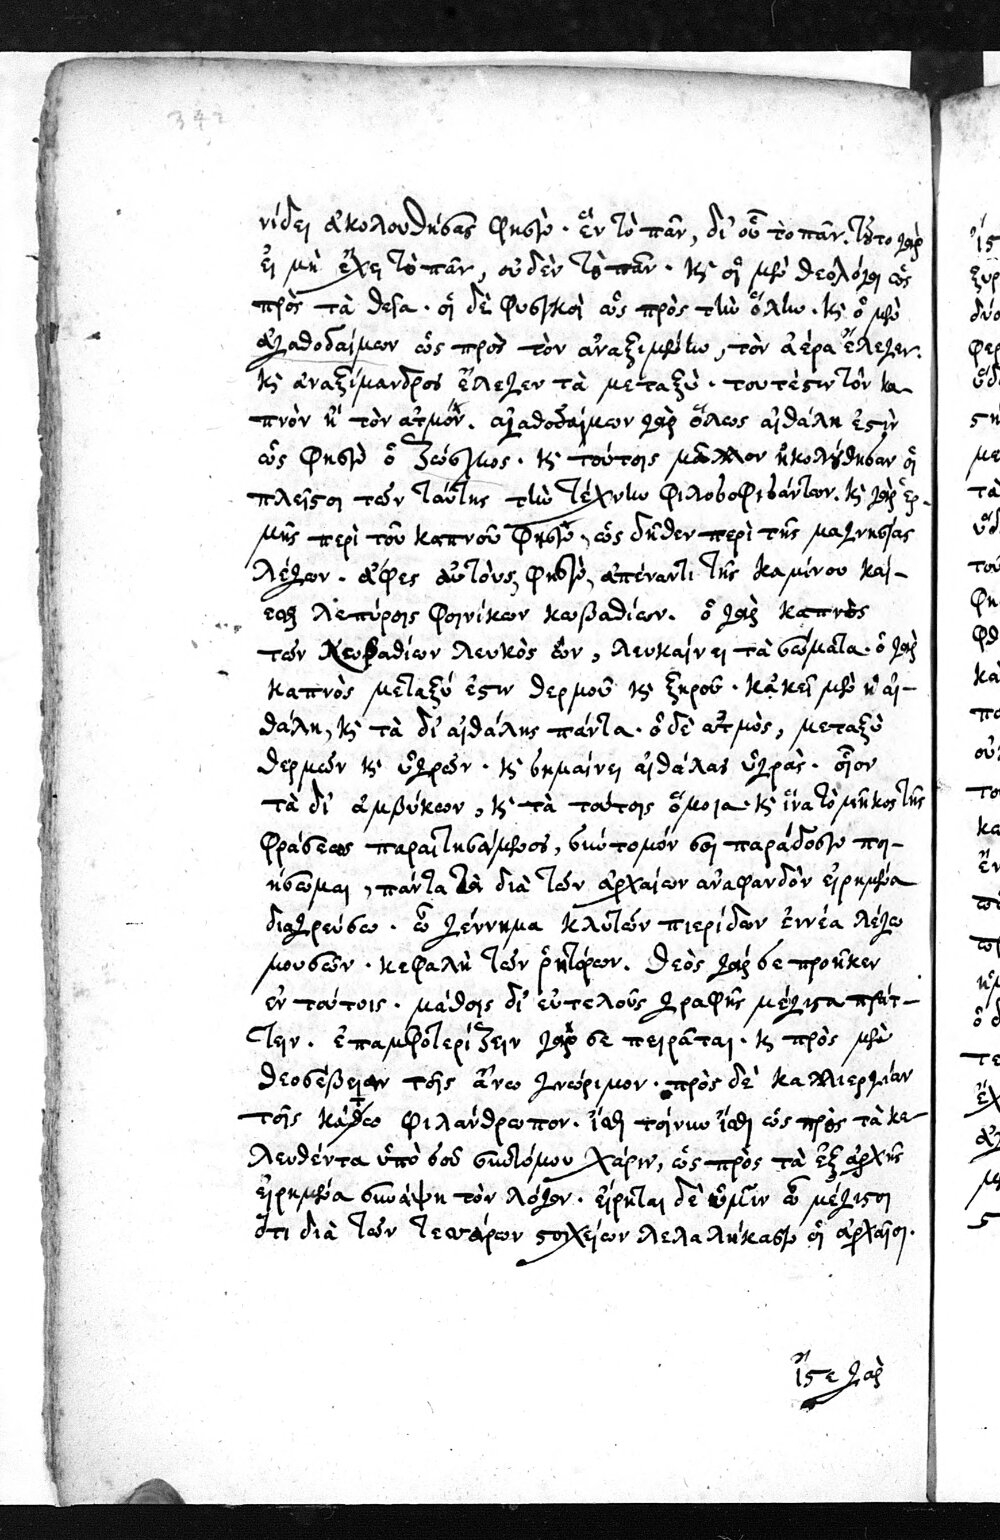 342
νίδει ἀκολουθήσας φησὶν· ἓν τὸ πᾶν, δι' οὗ τὸ πᾶν. τοῦτο γὰρ
εἰ μὴ ἔχει τὸ πᾶν, οὐδὲν τὸ πᾶν. καὶ οἱ μὲν θεολόγοι ὡς
πρὸς τὰ θεῖα· οἱ δὲ φυσικοὶ ὡς πρὸς τὴν ὕλην. καὶ ὁ μὲν
ἀγαθοδαίμων ὡς πρὸς τὸν ἀναξιμένην, τὸν ἀέρα ἔλεγεν.
καὶ ἀναξίμανδρος ἔλεγεν τὰ μεταξὺ· τουτέστιν τὸν κα-
πνὸν καὶ τὸν ἀτμόν. ἀγαθοδαίμων γὰρ ὅλως αἰθάλη ἐστὶν
ὥς φησὶν ὁ ζώσιμος. καὶ τούτοις μᾶλλον ἠκολούθησαν οἱ
πλεῖστοι τῶν ταύτης τὴν τέχνην φιλοσοφησάντων. καὶ γὰρ ἑρ-
μῆς περὶ τοῦ καπνοῦ φησὶν, ὡς δῆθεν περὶ τῆς μαγνησίας
λέγων. ἄφες αὐτοὺς, φησὶν, ἀπέναντι τῆς καμίνου καί-
εσθαι λεπύροις φοινίκων κωβαθίων. ὁ γὰρ καπνὸς
τῶν κωβαθίων λευκὸς ὢν, λευκαίνει τὰ σώματα. ὁ γὰρ
καπνὸς μεταξύ ἐστιν θερμοῦ καὶ ξηροῦ. κἀκεῖ μὲν ἡ αἰ-
θάλη, καὶ τὰ δι' αἰθάλης πάντα. ὁ δὲ ἀτμὸς, μεταξὺ
θερμῶν καὶ ὑγρῶν. καὶ σημαίνει αἰθάλας ὑγρὰς. οἷον
τὰ δι' ἀμβύκων, καὶ τὰ τούτοις ὅμοια. καὶ ἵνα τὸ μῆκος τῆς
φράσεως παραιτησάμενος, σύντομόν σοι παράδοσιν ποι-
ήσωμαι, πάντα τὰ διὰ τῶν ἀρχαίων ἀναφανδὸν εἰρημένα
διαγρεύσω. ὦ γέννημα κλυτῶν πιερίδων ἐννέα λέγω
μουσῶν. κεφαλὴ τῶν ῥητόρων. θεὸς γάρ σε προῆκεν
ἐν τούτοις. μάθοις δι' εὐτελοῦς γραφῆς μέγιστα πράτ-
τειν. ἐπαμφοτερίζειν γὰρ σε πειρᾶται. καὶ πρὸς μὲν
θεοσέβειαν τοῖς ἄνω γνώριμον. πρὸς δὲ καλλιεργίαν
τοῖς κάτω φιλάνθρωπον. ἴθι τοίνυν ἴθι ὡς πρὸς τὰ κε-
λευθέντα ὑπὸ σοῦ συντόμου χάριν, ὡς πρὸς τὰ ἐξ ἀρχῆς
εἰρημένα συνάψῃ τὸν λόγον. εἴρηται δὲ ὑμῖν ὦ μέγιστοι
ὅτι διὰ τῶν τεσσάρων στοιχείων λελαλήκασιν οἱ ἀρχαῖοι.
ἴστε γὰρ